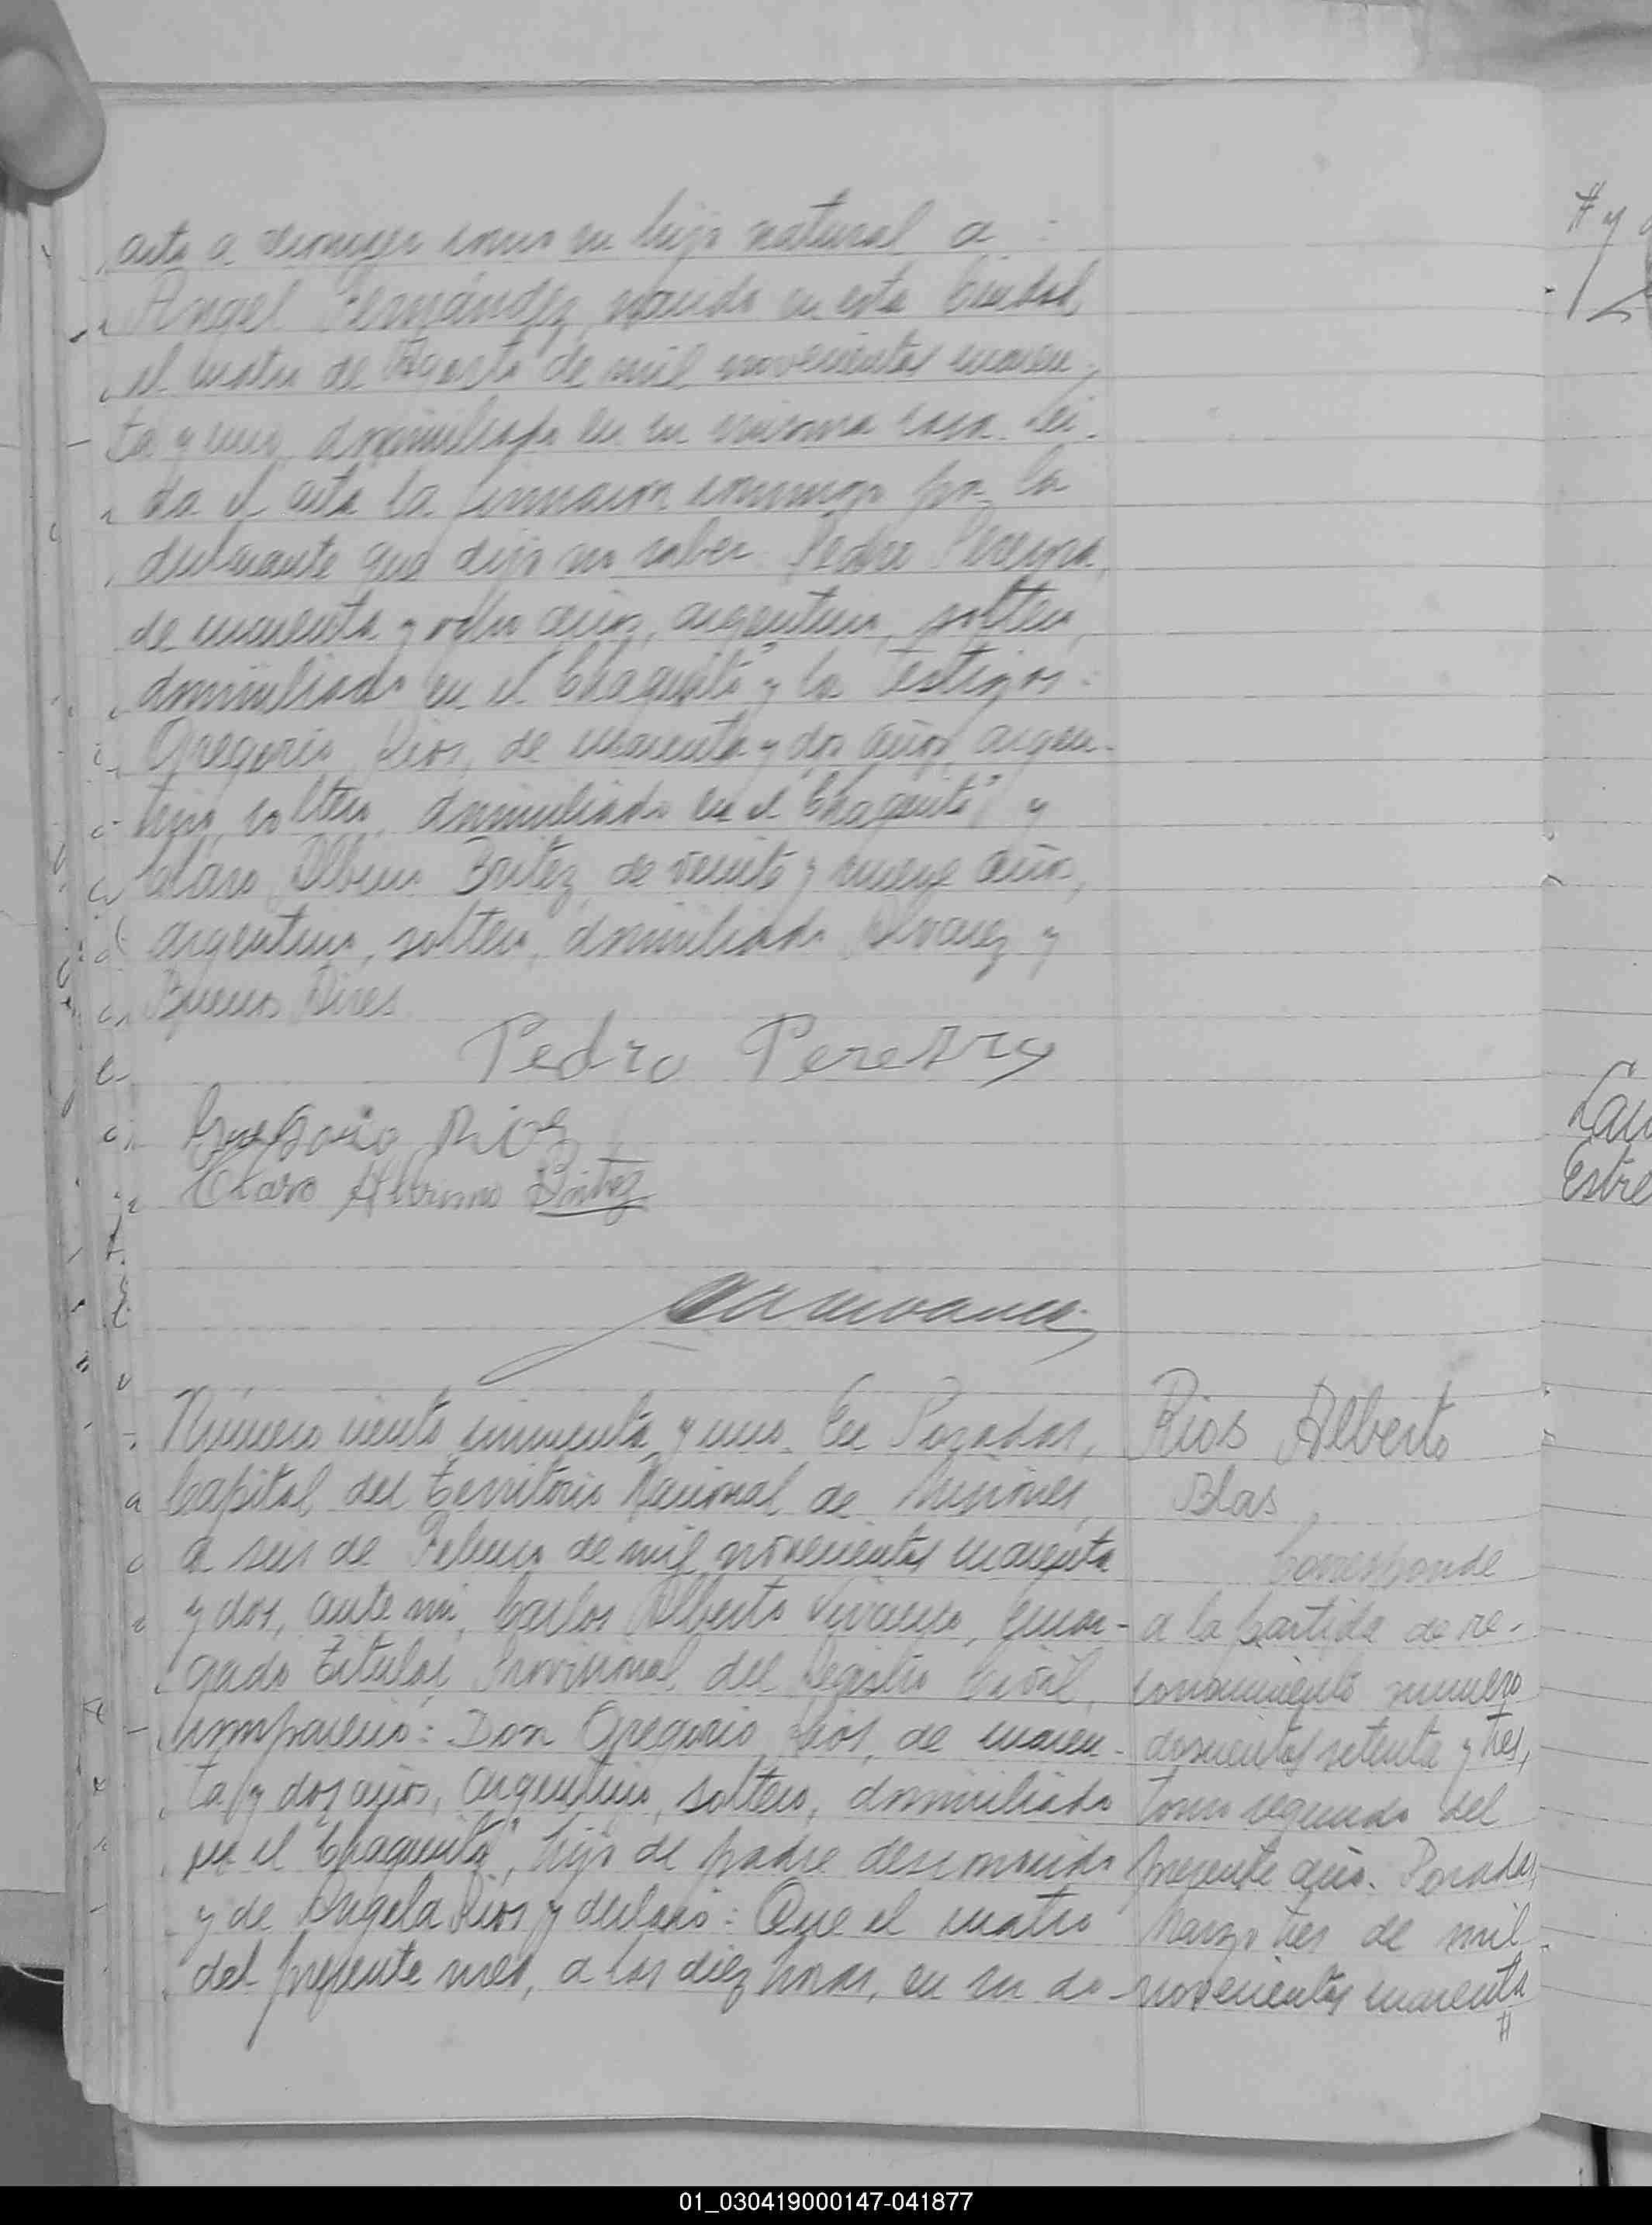 acto a reconocer como su hijo natural a :
Angel Fernández, nacido en esta Ciudad,
el cuatro de Agosto de mil novecientos cuaren-
ta y uno, domiciliado en su misma casa. Leí-
da el acta la firmaron conmigo por la
declarante que dijo no saber Pedro Pereyra,
de cuarenta y ocho años, argentino, soltero,
domiciliado en el "Chaquito" y los testigos:
Gregorio Rios, de cuarenta y dos años, argen-
tino, soltero, domiciliado en el "Chaquito" y
Claro Albino Britez, de veinte y nueve años,
argentino, soltero, domiciliado Alvarez y
Buenos Aires
Pedro Pereyra
Gregorio Rios
Claro Albino Britez
Número ciento cincuenta y uno. En Posadas,
Capital del Territorio Nacional de Misiones,
a seis de Febrero de mil novecientos cuarenta
y dos, ante mi, Carlos Alberto Vivanco, Encar-
gado Titular Provisional del Registro Civil,
compareció: Don Gregorio Rios, de cuaren-
ta y dos años, argentino, soltero, domiciliado
en el "Chaquito", hijo de padre desconocido
y de Angela Rios, y declaró: Que el cuatro
del presente mes, a las diez horas, en su do-
Rios Alberto
Blas
Corresponde
a la partida de re-
conocimiento numero
doscientos setenta y tres,
tomo segundo del
presente año. Posadas,
Marzo tres de mil
novecientos cuarenta
#
# y
Lau
Estre
01_030419000147-041877